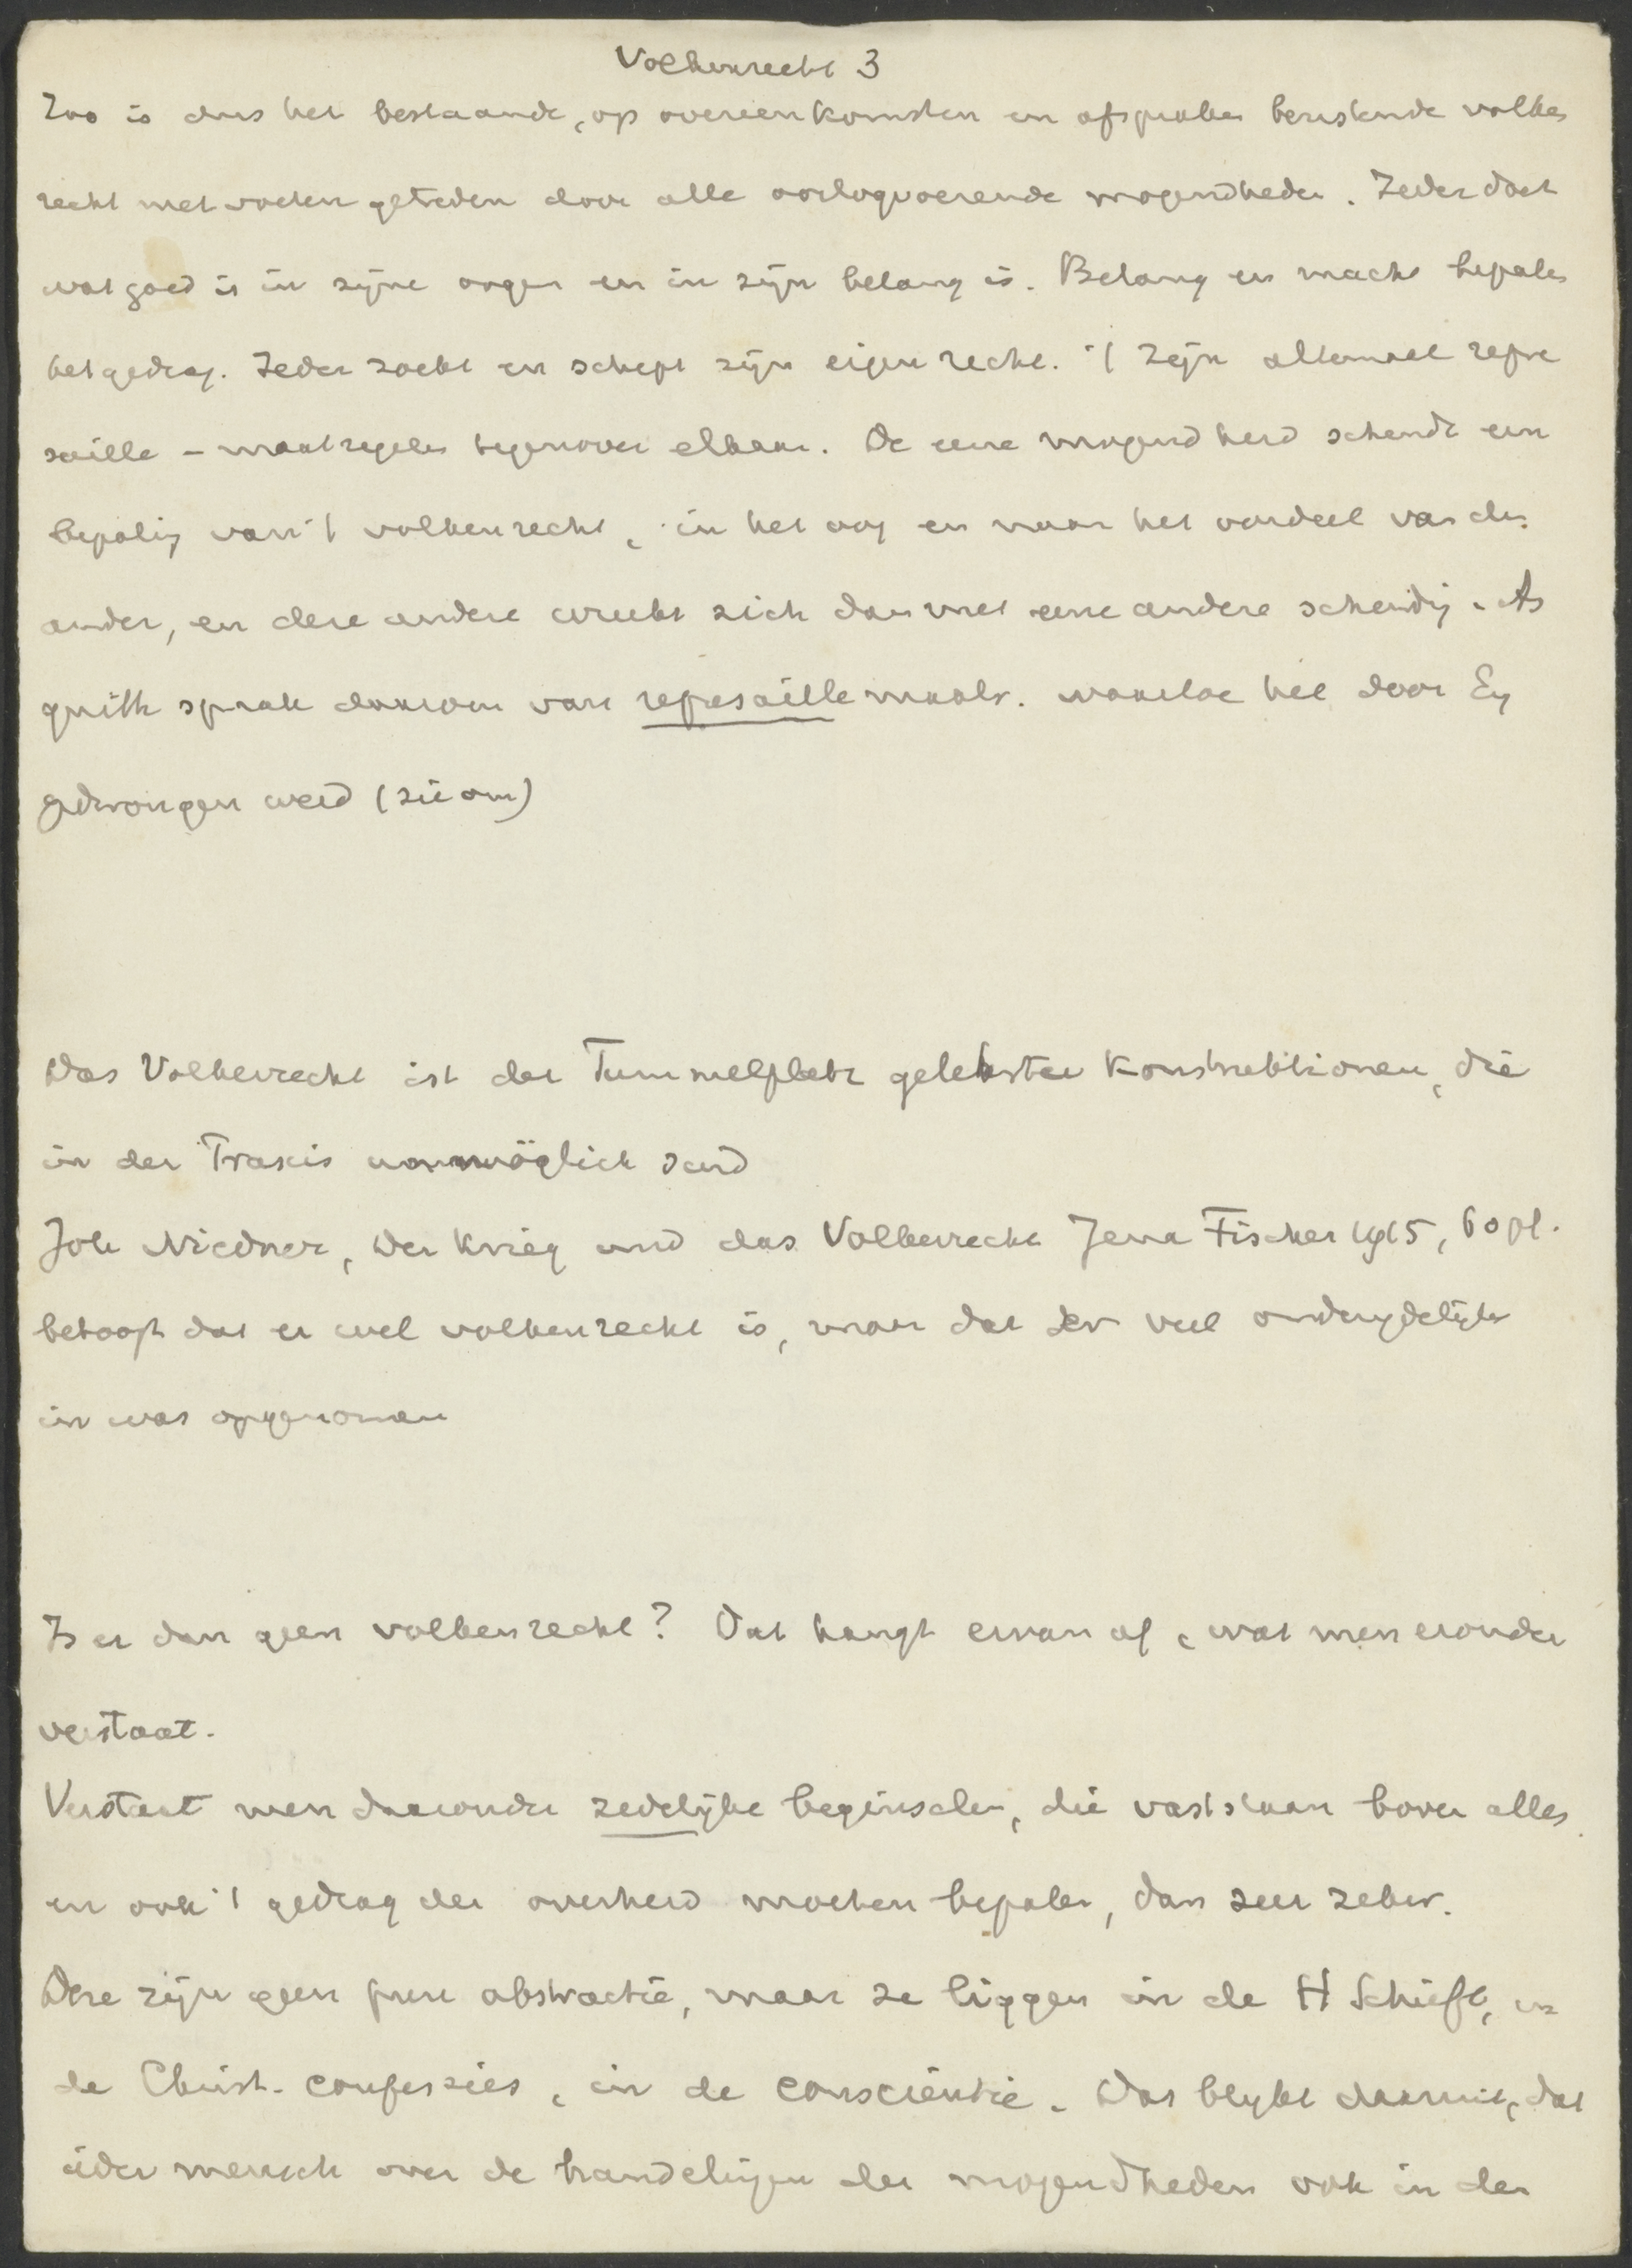 Volkenrecht 3
Zoo is dus het bestaande, op overeenkomsten en afspraken berustende volken
recht met voeten getreden door alle oorlogvoerende mogendheden. Ieder doet
wat goed is in zijne oogen en in zijn belang is. Belang en macht bepalen
het gedrag. Ieder zoekt en schept zijn eigen recht. 't zijn allemaal repre
saille - maatregelen tegenover elkaar. De eene mogendheid schendt een
bepaling van 't volkenrecht, in het oog en naar het oordeel van den
ander, en deze andere wreekt zich dan met eene andere schending. As
quith sprak daarom van represaille maatr. waartoe hee door Eng
gedwongen werd (zie om)
Das Volkerrecht ist der Tummelplatz gelehrter Konstruktionen, die
in der Praxis unmöglich sind
Joh Niedner, Der Krieg und das Volkerrecht Jena Fischer 1915, 60 pf.
betoogt dat er wel volkenrecht is, maar dat er veel ondeugdelijks
in was opgenomen
Is er dan geen volkenrecht? Dat hangt ervan af, wat men eronder
verstaat.
Verstaat men daaronder zedelijke beginselen, die vaststaan boven alles
en ook 't gedrag der overheid moeten bepalen, dan zeer zeker.
Deze zijn geen pure abstractie, maar ze liggen in de H Schrift, in
de Christ. confessies, in de conscientie. Dat blijkt daaruit, dat
ider mensch over de handelingen der mogendheden ook in den